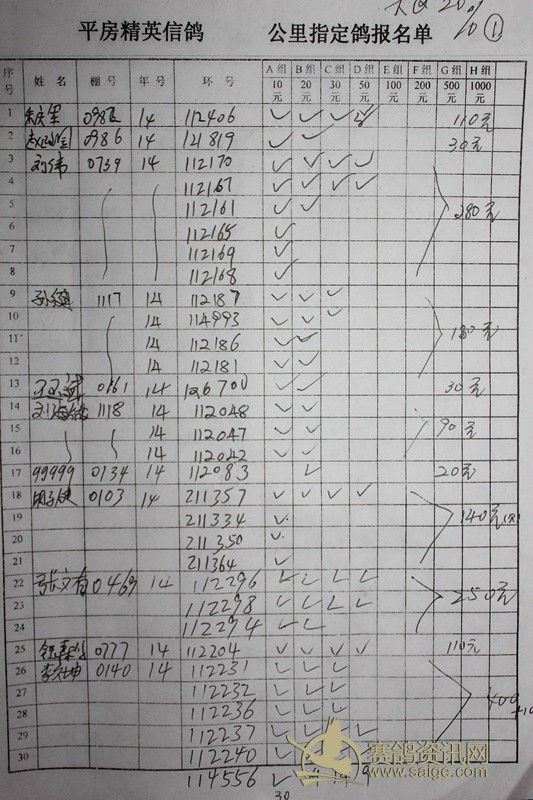 20%
10 ①
平房精英信鸽 公里指定鸽报名单
序号 姓名 棚号 年号 环号 A组 B组 C组 D组 E组 F组 G组 H组
10元 20元 30元 50元 100元 200元 500元 1000元
1 0986 14 112406 ✓ ✓ ✓ ✓ 110元
2 0986 14 121819 ✓ ✓ 30元
3 刘伟 0739 14 112170 ✓ ✓ ✓ ✓
4 112167 ✓ ✓ ✓ ✓
5 112161 ✓ ✓ 380元
6 112165 ✓
7 112169 ✓
8 112168 ✓
9 1117 14 112187 ✓ ✓ ✓
10 14 114993 ✓ ✓ ✓
11 14 112186 ✓ ✓ 180元
12 14 112181 ✓ ✓
13 0161 14 126700 ✓ ✓ 30元
14 1118 14 112048 ✓ ✓
15 14 112047 ✓ ✓ 90元
16 14 112042 ✓ ✓
17 99999 0134 14 112083 ✓ 20元
18 0103 14 211357 ✓ ✓ ✓ ✓
19 211334 ✓ 140元
20 211350 ✓
21 211364 ✓
22 张文有 0469 14 112296 ✓ ✓ ✓ ✓
23 112298 ✓ ✓ ✓ ✓ 250元
24 112294 ✓ ✓
25 0777 14 112204 ✓ ✓ ✓ ✓ 110元
26 李社坤 0140 14 112231 ✓ ✓ ✓
27 112232 ✓ ✓ ✓
28 112236 ✓ ✓ ✓ 400
29 112237 ✓ ✓ ✓
30 112240 ✓
114556 ✓
30
赛鸽资讯网
www.saige.com